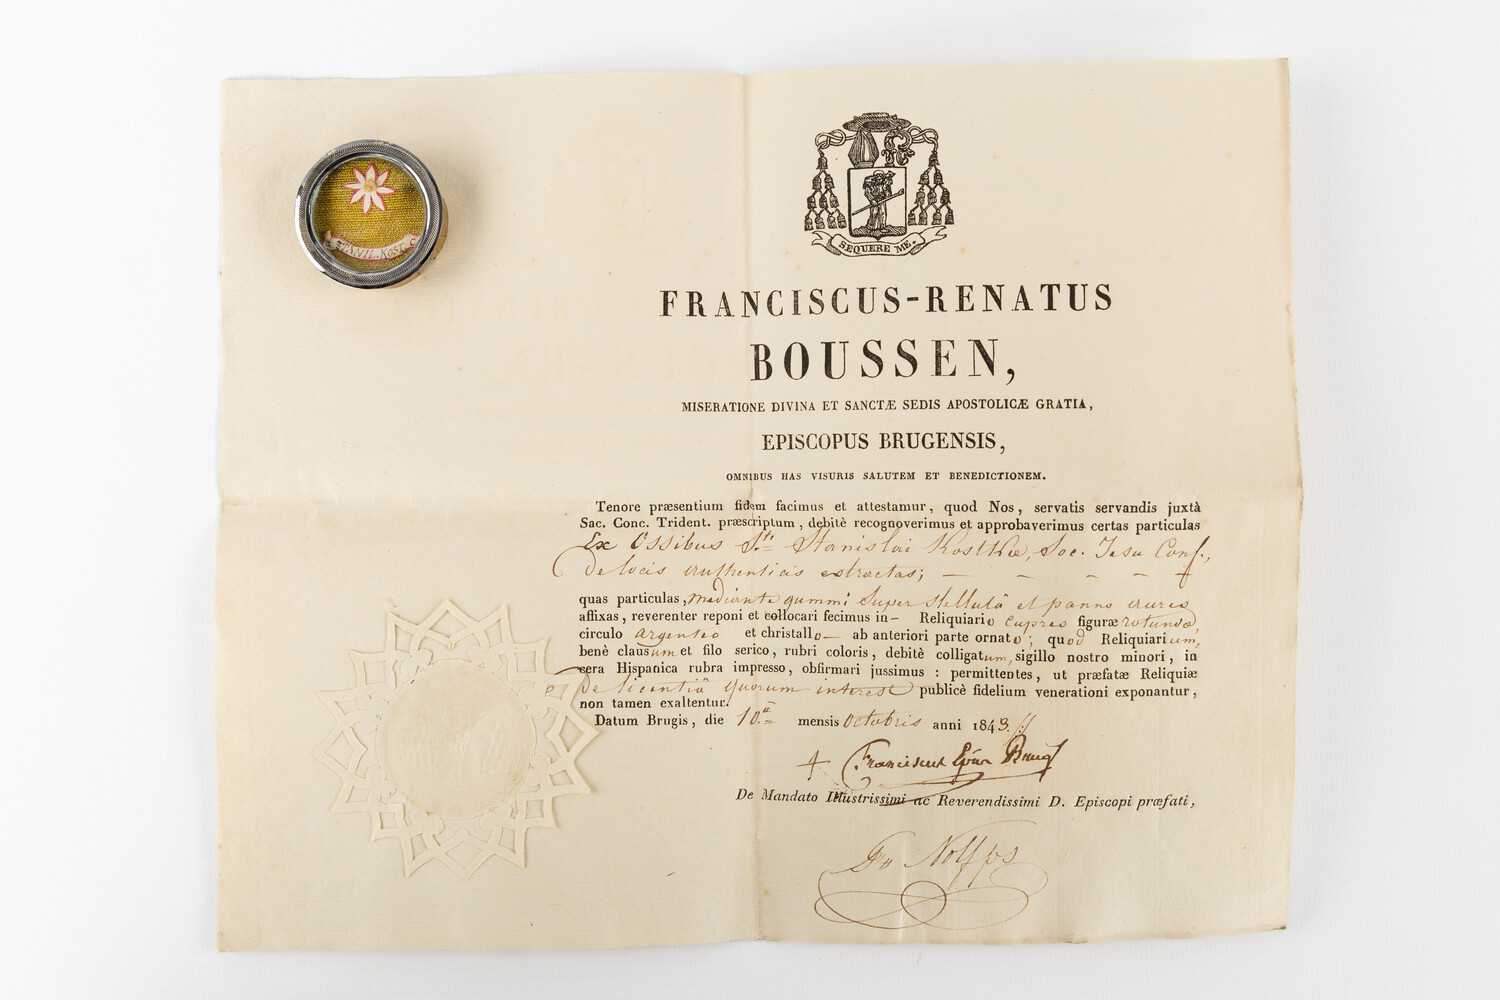 NNIL. KOST.
SEQUERE ME.
FRANCISCUS-RENATUS
BOUSSEN,
MISERATIONE DIVINA ET SANCTÆ SEDIS APOSTOLICÆ GRATIA,
EPISCOPUS BRUGENSIS,
OMNIBUS HAS VISURIS SALUTEM ET BENEDICTIONEM.
Tenore præsentium fidem facimus et attestamur, quod Nos, servatis servandis juxtà
Sac. Conc. Trident. præscriptum, debitè recognoverimus et approbaverimus certas particulas
Ex Ossibus Sti Stanislai Kostkæ, Soc. Jesu Conf.,
de locis authenticis extractas; — - - - +
quas particulas, mediante gummi super stellulâ et panno aureo
affixas, reverenter reponi et collocari fecimus in - Reliquiario cupreo figuræ rotundæ,
circulo argenteo et christallo - ab anteriori parte ornato; quod Reliquiarium,
benè clausum et filo serico, rubri coloris, debitè colligatum, sigillo nostro minori, in
cera Hispanica rubra impresso, obfirmari jussimus : permittentes, ut præfatæ Reliquiæ
de licentiâ quorum interest publicè fidelium venerationi exponantur,
non tamen exaltentur.
Datum Brugis, die 10.â mensis Octobris anni 1843.
+ Franciscus Epùs Brug
De Mandato Illustrissimi ac Reverendissimi D. Episcopi præfati,